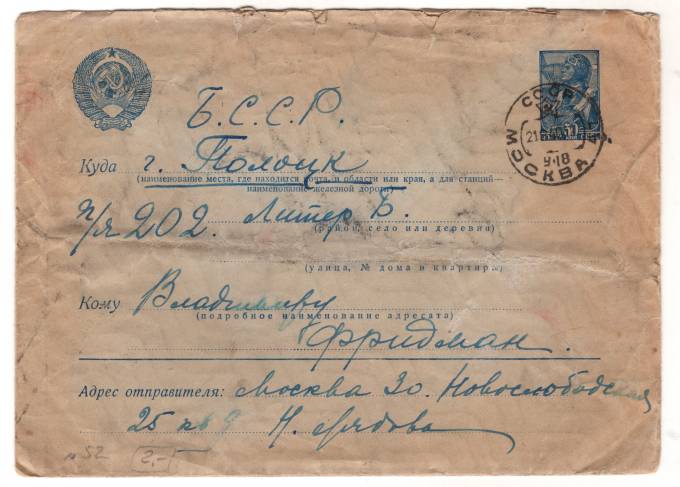 Б.С.С.Р.
Куда г. Полоцк
(наименование места, где находится почта, и области или края, а для станций—
наименование железной дороги)
п/я 202. Литер Б.
(район, село или деревня)
(улица, № дома и квартиры)
Кому Владимиру
(подробное наименование адресата)
Фридман.
Адрес отправителя: Москва 30. Новослободская
25 кв 9 Н.
СССР
МОСКВА
№ 52 2,-